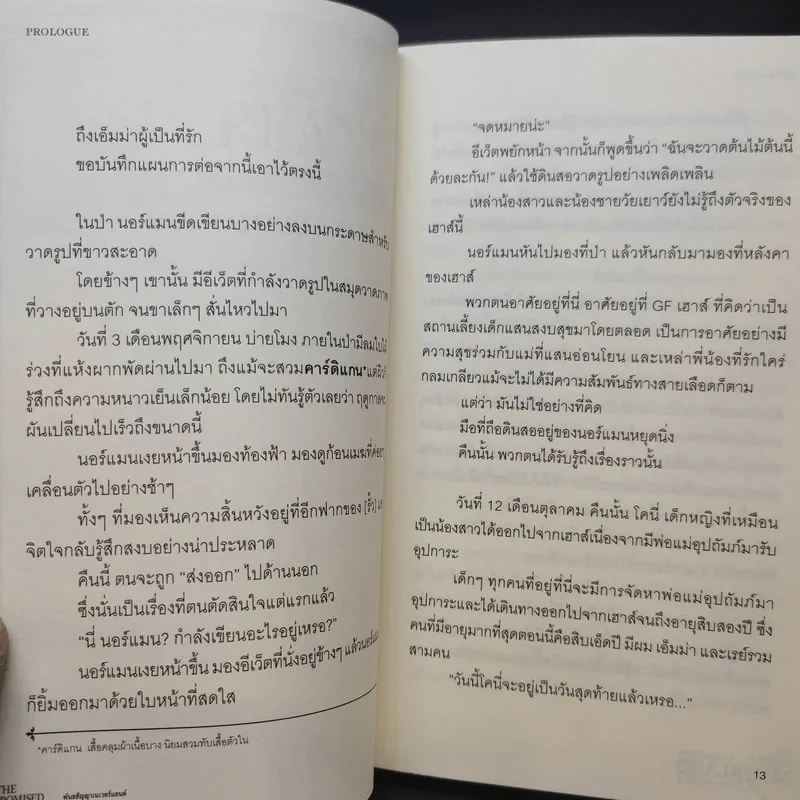 PROLOGUE
ถึงเอ็มม่าผู้เป็นที่รัก
ขอบันทึกแผนการต่อจากนี้เอาไว้ตรงนี้
ในป่า นอร์แมนขีดเขียนบางอย่างลงบนกระดาษสำหรับ
วาดรูปที่ขาวสะอาด
โดยข้างๆ เขานั้น มีอีเว็ตที่กำลังวาดรูปในสมุดวาดภาพ
ที่วางอยู่บนตัก จนขาเล็กๆ สั่นไหวไปมา
วันที่ 3 เดือนพฤศจิกายน บ่ายโมง ภายในป่ามีลมใบไม้
ร่วงที่แห้งผากพัดผ่านไปมา ถึงแม้จะสวมคาร์ดิแกน*แต่
รู้สึกถึงความหนาวเย็นเล็กน้อย โดยไม่ทันรู้ตัวเลยว่า
ผันเปลี่ยนไปเร็วถึงขนาดนี้
นอร์แมนเงยหน้าขึ้นมองท้องฟ้า มองดูก้อนเมฆที่ค่อยๆ
เคลื่อนตัวไปอย่างช้าๆ
ทั้งๆ ที่มองเห็นความสิ้นหวังอยู่ที่อีกฟากของ [รั้ว]
จิตใจกลับรู้สึกสงบอย่างน่าประหลาด
คืนนี้ ตนจะถูก “ส่งออก” ไปด้านนอก
ซึ่งนั่นเป็นเรื่องที่ตนตัดสินใจแต่แรกแล้ว
“นี่ นอร์แมน? กำลังเขียนอะไรอยู่เหรอ?”
นอร์แมนเงยหน้าขึ้น มองอีเว็ตที่นั่งอยู่ข้างๆ แล้วนอร์แมน
ก็ยิ้มออกมาด้วยใบหน้าที่สดใส
*คาร์ดิแกน เสื้อคลุมผ้าเนื้อบาง นิยมสวมทับเสื้อตัวใน
THE
PROMISED
พันธสัญญาเนเวอร์แลนด์
“จดหมายน่ะ”
อีเว็ตพยักหน้า จากนั้นก็พูดขึ้นว่า “ฉันจะวาดต้นไม้ต้นนี้
ด้วยละกัน!” แล้วใช้ดินสอวาดรูปอย่างเพลิดเพลิน
เหล่าน้องสาวและน้องชายวัยเยาว์ยังไม่รู้ถึงตัวจริงของ
เฮาส์นี้
นอร์แมนหันไปมองที่ป่า แล้วหันกลับมามองที่หลังคา
ของเฮาส์
พวกตนอาศัยอยู่ที่นี่ อาศัยอยู่ที่ GF เฮาส์ ที่คิดว่าเป็น
สถานเลี้ยงเด็กแสนสงบสุขมาโดยตลอด เป็นการอาศัยอย่างมี
ความสุขร่วมกับแม่ที่แสนอ่อนโยน และเหล่าพี่น้องที่รักใคร่
กลมเกลียวแม้จะไม่ได้มีความสัมพันธ์ทางสายเลือดก็ตาม
แต่ว่า มันไม่ใช่อย่างที่คิด
มือที่ถือดินสออยู่ของนอร์แมนหยุดนิ่ง
คืนนั้น พวกตนได้รับรู้ถึงเรื่องราวนั้น
วันที่ 12 เดือนตุลาคม คืนนั้น โคนี่ เด็กหญิงที่เหมือน
เป็นน้องสาวได้ออกไปจากเฮาส์เนื่องจากมีพ่อแม่อุปถัมภ์มารับ
อุปการะ
เด็กๆ ทุกคนที่อยู่ที่นี่จะมีการจัดหาพ่อแม่อุปถัมภ์มา
อุปการะและได้เดินทางออกไปจากเฮาส์จนถึงอายุสิบสองปี ซึ่ง
คนที่มีอายุมากที่สุดตอนนี้คือสิบเอ็ดปี มีผม เอ็มม่า และเรย์รวม
สามคน
“วันนี้โคนี่จะอยู่เป็นวันสุดท้ายแล้วเหรอ...”
13